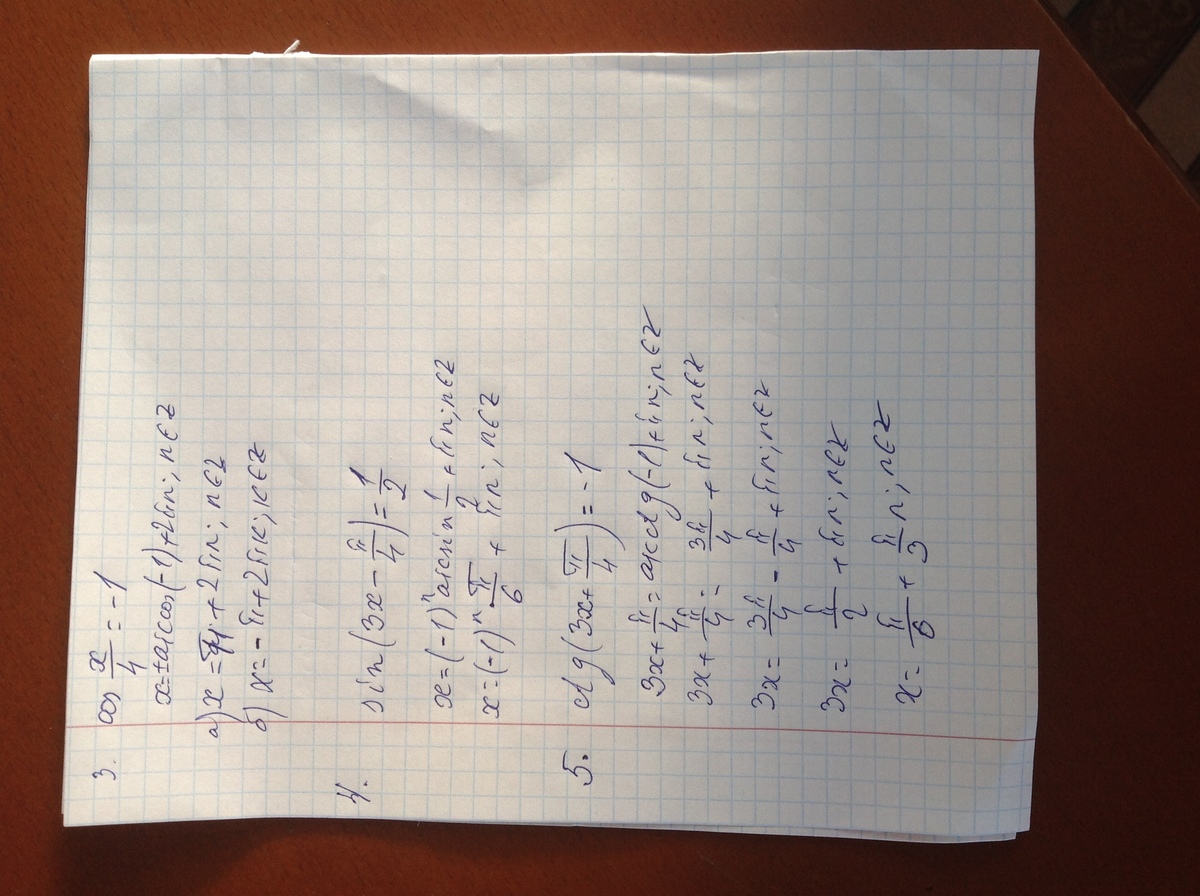 3. cos x/4 = -1
x=±arccos(-1)+2πn; n∈Z
а) x = π + 2πn; n∈Z
б) x = -π+2πk; k∈Z
4. sin(3x - π/4) = 1/2
x=(-1)ⁿ arcsin 1/2 + πn; n∈Z
x=(-1)ⁿ · π/6 + πn; n∈Z
5. ctg(3x+ π/4) = -1
3x+ π/4 = arcctg(-1)+πn; n∈Z
3x+ π/4 = 3π/4 + πn; n∈Z
3x= 3π/4 - π/4 + πn; n∈Z
3x= π/2 + πn; n∈Z
x= π/6 + π/3 n; n∈Z